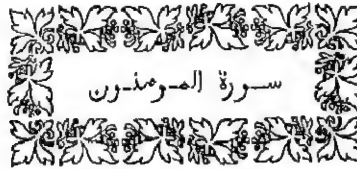 سورة المومنون